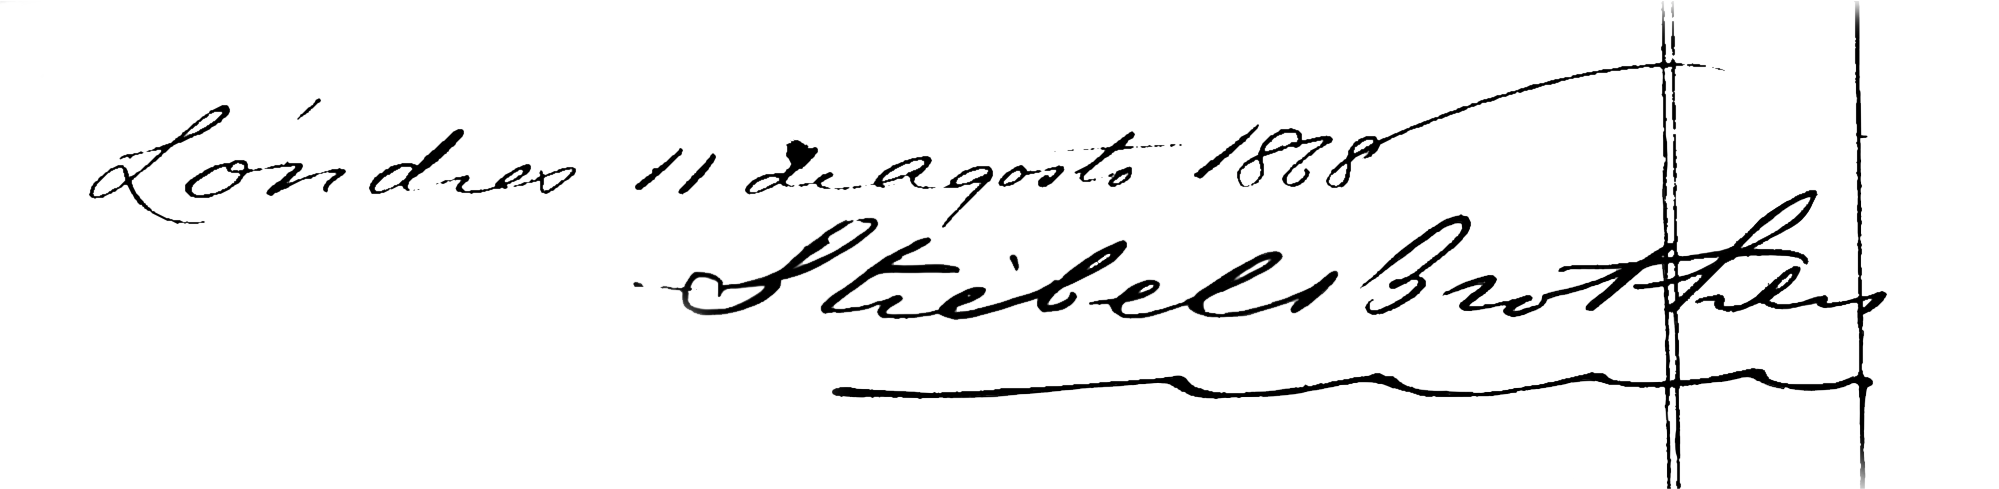 Lóndres 11 de agosto 1868
Stiebel Brothers